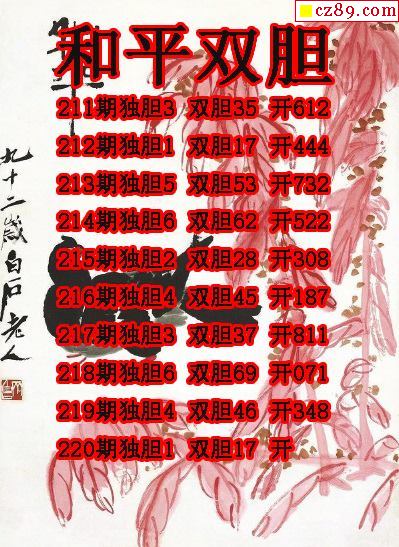 cz89.com
和平双胆
211期独胆3 双胆35 开612
212期独胆1 双胆17 开444
213期独胆5 双胆53 开732
214期独胆6 双胆62 开522
215期独胆2 双胆28 开308
216期独胆4 双胆45 开187
217期独胆3 双胆37 开811
218期独胆6 双胆69 开071
219期独胆4 双胆46 开348
220期独胆1 双胆17 开
九十二岁白石老人